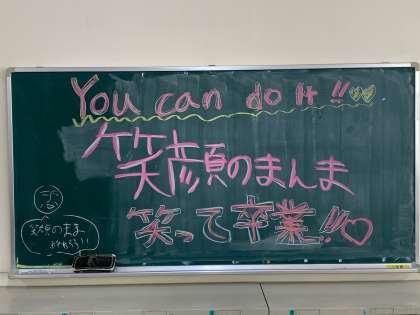 You can do It!!
笑顔のまんま
笑って卒業!!
笑顔のまま